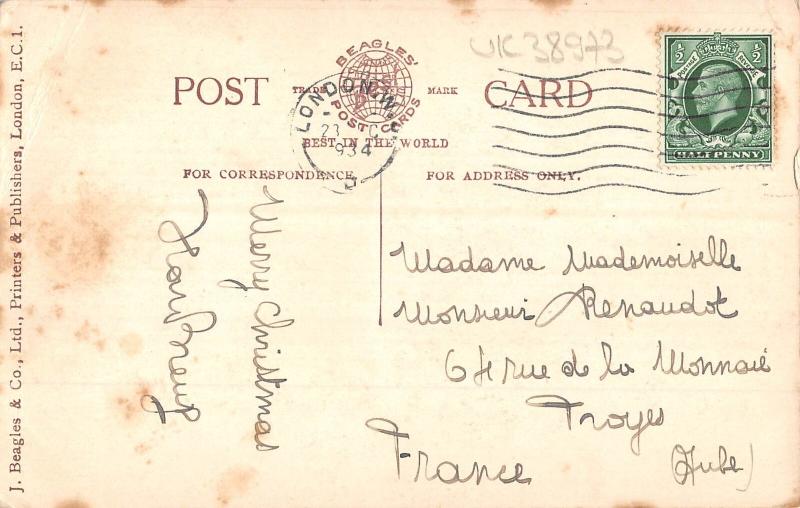 UK38973
POST CARD
BEAGLES'
POST CARDS
TRADE MARK
BEST IN THE WORLD
FOR CORRESPONDENCE
FOR ADDRESS ONLY.
LONDON. W.
23 1934
½ ½
POSTAGE REVENUE
HALFPENNY
Merry Christmas
Madame Mademoiselle
Monsieur Renaudot
64 rue de la Monnaie
Troyes
France (Aube)
J. Beagles & Co., Ltd., Printers & Publishers, London, E.C.1.